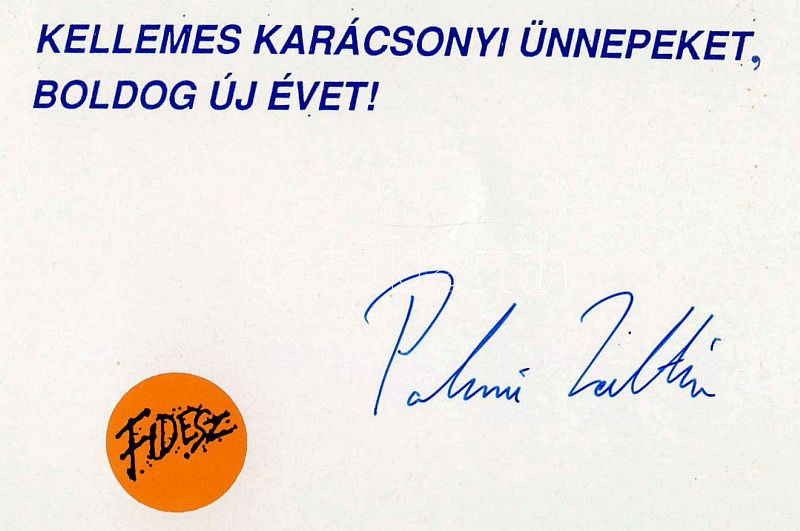 KELLEMES KARÁCSONYI ÜNNEPEKET,
BOLDOG ÚJ ÉVET!
Zoltán
FIDESZ